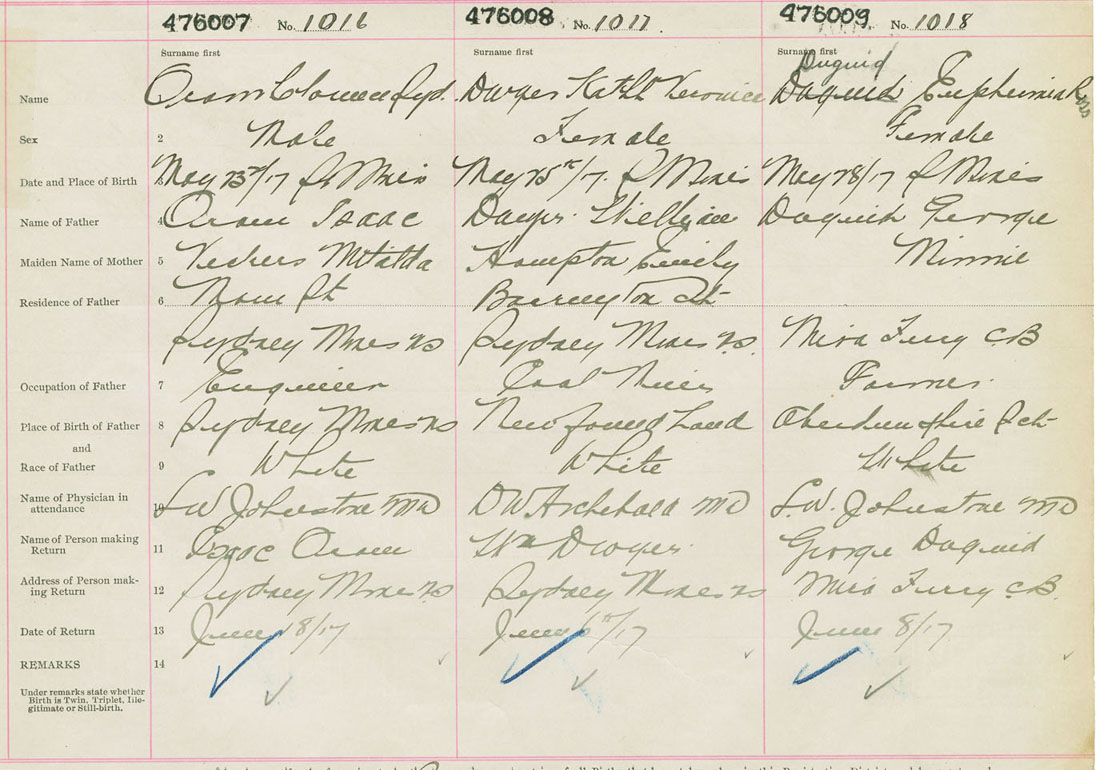 476007 No. 1016 476008 No. 1017 476009 No. 1018
Surname first Surname first Surname first
Duguid
Name Oram Dwyer Kathl Veronica Duguid Euphemia
Sex 2 Male Female Female
Date and Place of Birth May 23rd/17 S Mines May 25th/17. S Mines May 28/17 S Mines
Name of Father 4 Oram Isaac Dwyer William Duguid George
Maiden Name of Mother 5 Matilda Hampton Emily Minnie
Residence of Father 6 Main St Barrington St
Sydney Mines NS Sydney Mines NS. Mira Ferry CB
Occupation of Father 7 Engineer Coal Miner Farmer.
Place of Birth of Father 8 Sydney Mines NS Newfound Land
and
Race of Father 9 White White White
Name of Physician in
attendance 10 L W Johnstone MD D W Archibald MD L.W. Johnstone MD
Name of Person making
Return 11 Isaac Oram Wm Dwyer George Duguid
Address of Person mak-
ing Return 12 Sydney Mines NS Sydney Mines NS Mira Ferry CB.
Date of Return 13 June 18/17 June 6th/17 June 8/17
REMARKS 14
Under remarks state whether
Birth is Twin, Triplet, Ille-
gitimate or Still-birth.